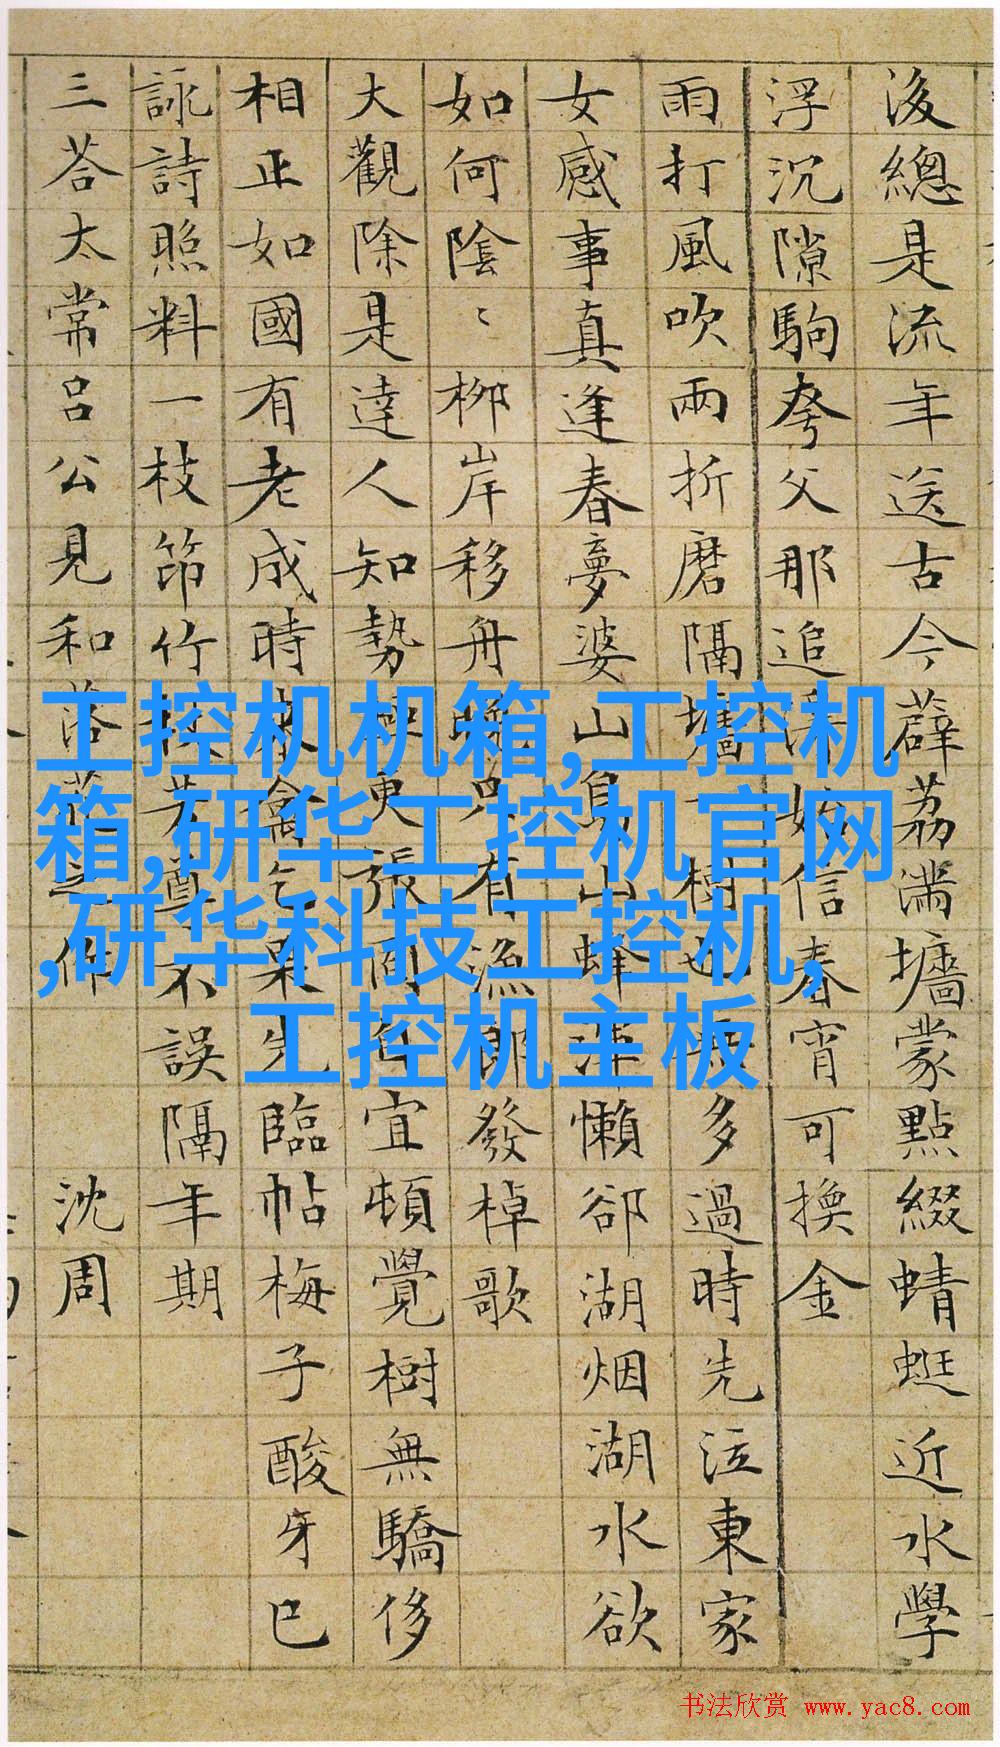 後總是流年送古今薜荔滿墻蒙點綴蜻蜓近水學
浮沉隙駒夸父那追信春宵可換金
雨打風吹兩折磨隔墻一樹也無多過時先泣東家
女感事真逢春夢婆山鳥山蜂渾懶郤湖烟湖水欲
如何陰〻柳岸移舟晚只有漁郎發棹歌
大觀除是達人知勢更張宜頓覺樹無驕侈
相正如國有老成時來禽乞果先臨帖梅子酸牙已
詠詩照料一枝笻竹杖芳尊不誤隔年期
三荅太常呂公見和落花之作 沈周
工控机机箱,工控机
箱,研华工控机官网
,研华科技工控机,
工控机主板
书法欣赏 www.yac8.com